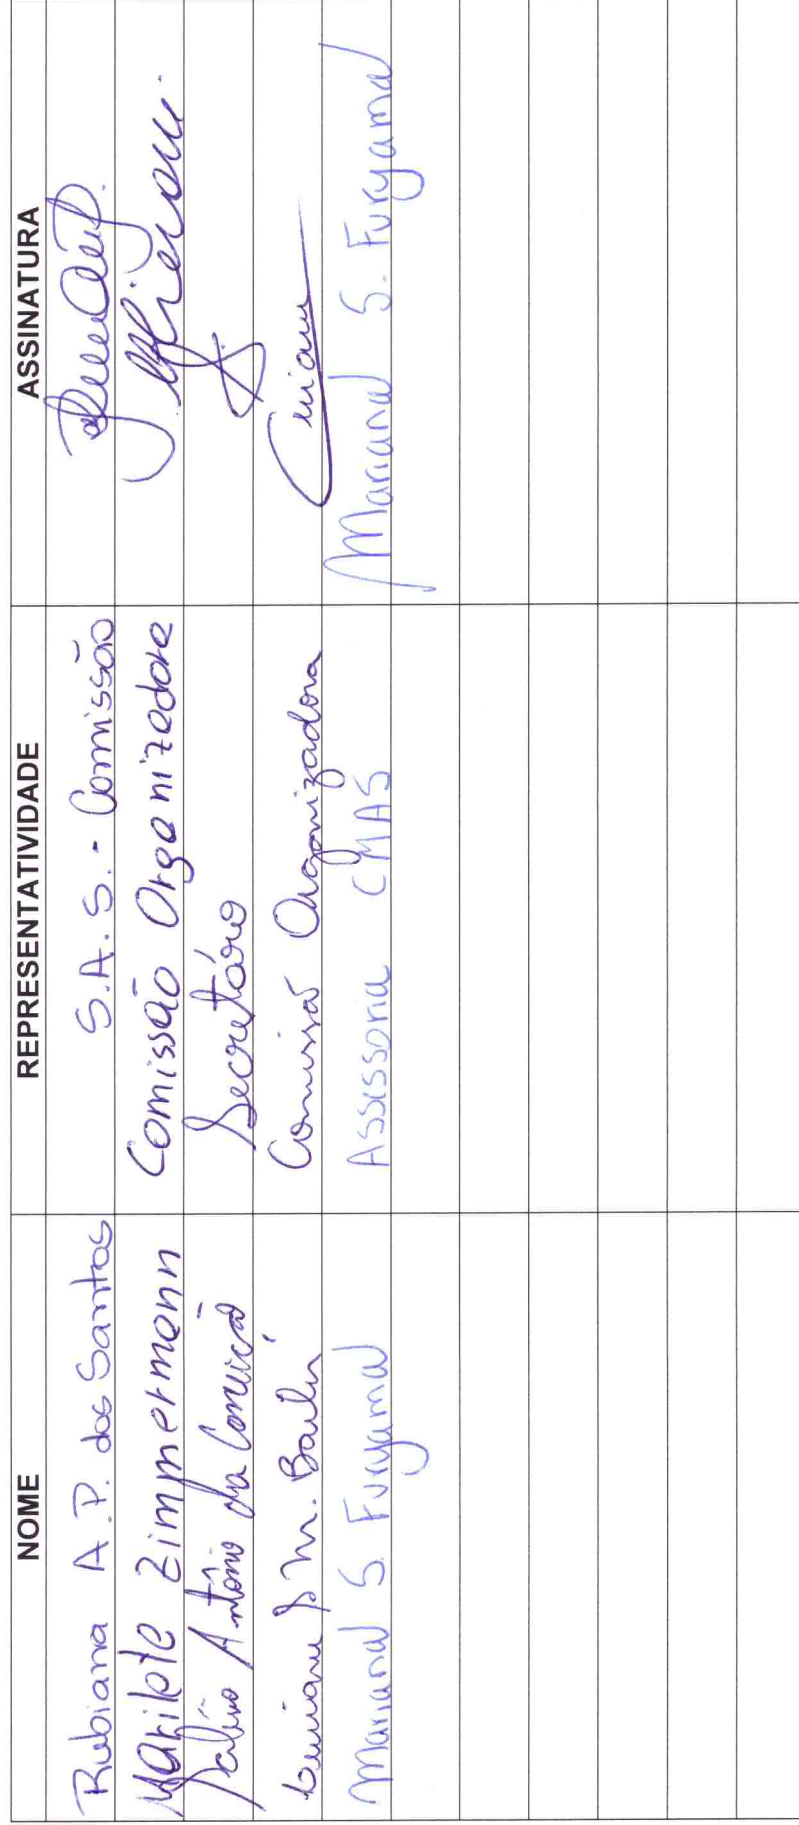 NOME REPRESENTATIVIDADE ASSINATURA
Rubiana A.P. dos Santos S.A.S. - Comissão
Marilete Zimmermann Comissão Organizadora
Antônio da Secretário
M. Comissão Organizadora
Mariana S. Furyama Assessoria CMAS Mariana S. Furyama